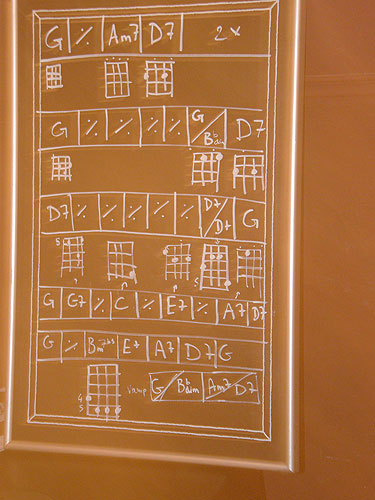 G | ٪ | Am7 | D7 | 2x
G | ٪ | ٪ | ٪ | ٪ | G / Bbdim | D7
D7 | ٪ | ٪ | ٪ | ٪ | D7 / D+ | G
5 5
G | G7 | ٪ | C | ٪ | E7 | ٪ | A7 | D7
G | ٪ | Bm7b5 | E7 | A7 | D7 | G
4
5
Vamp G / Bbdim | Am7 / D7